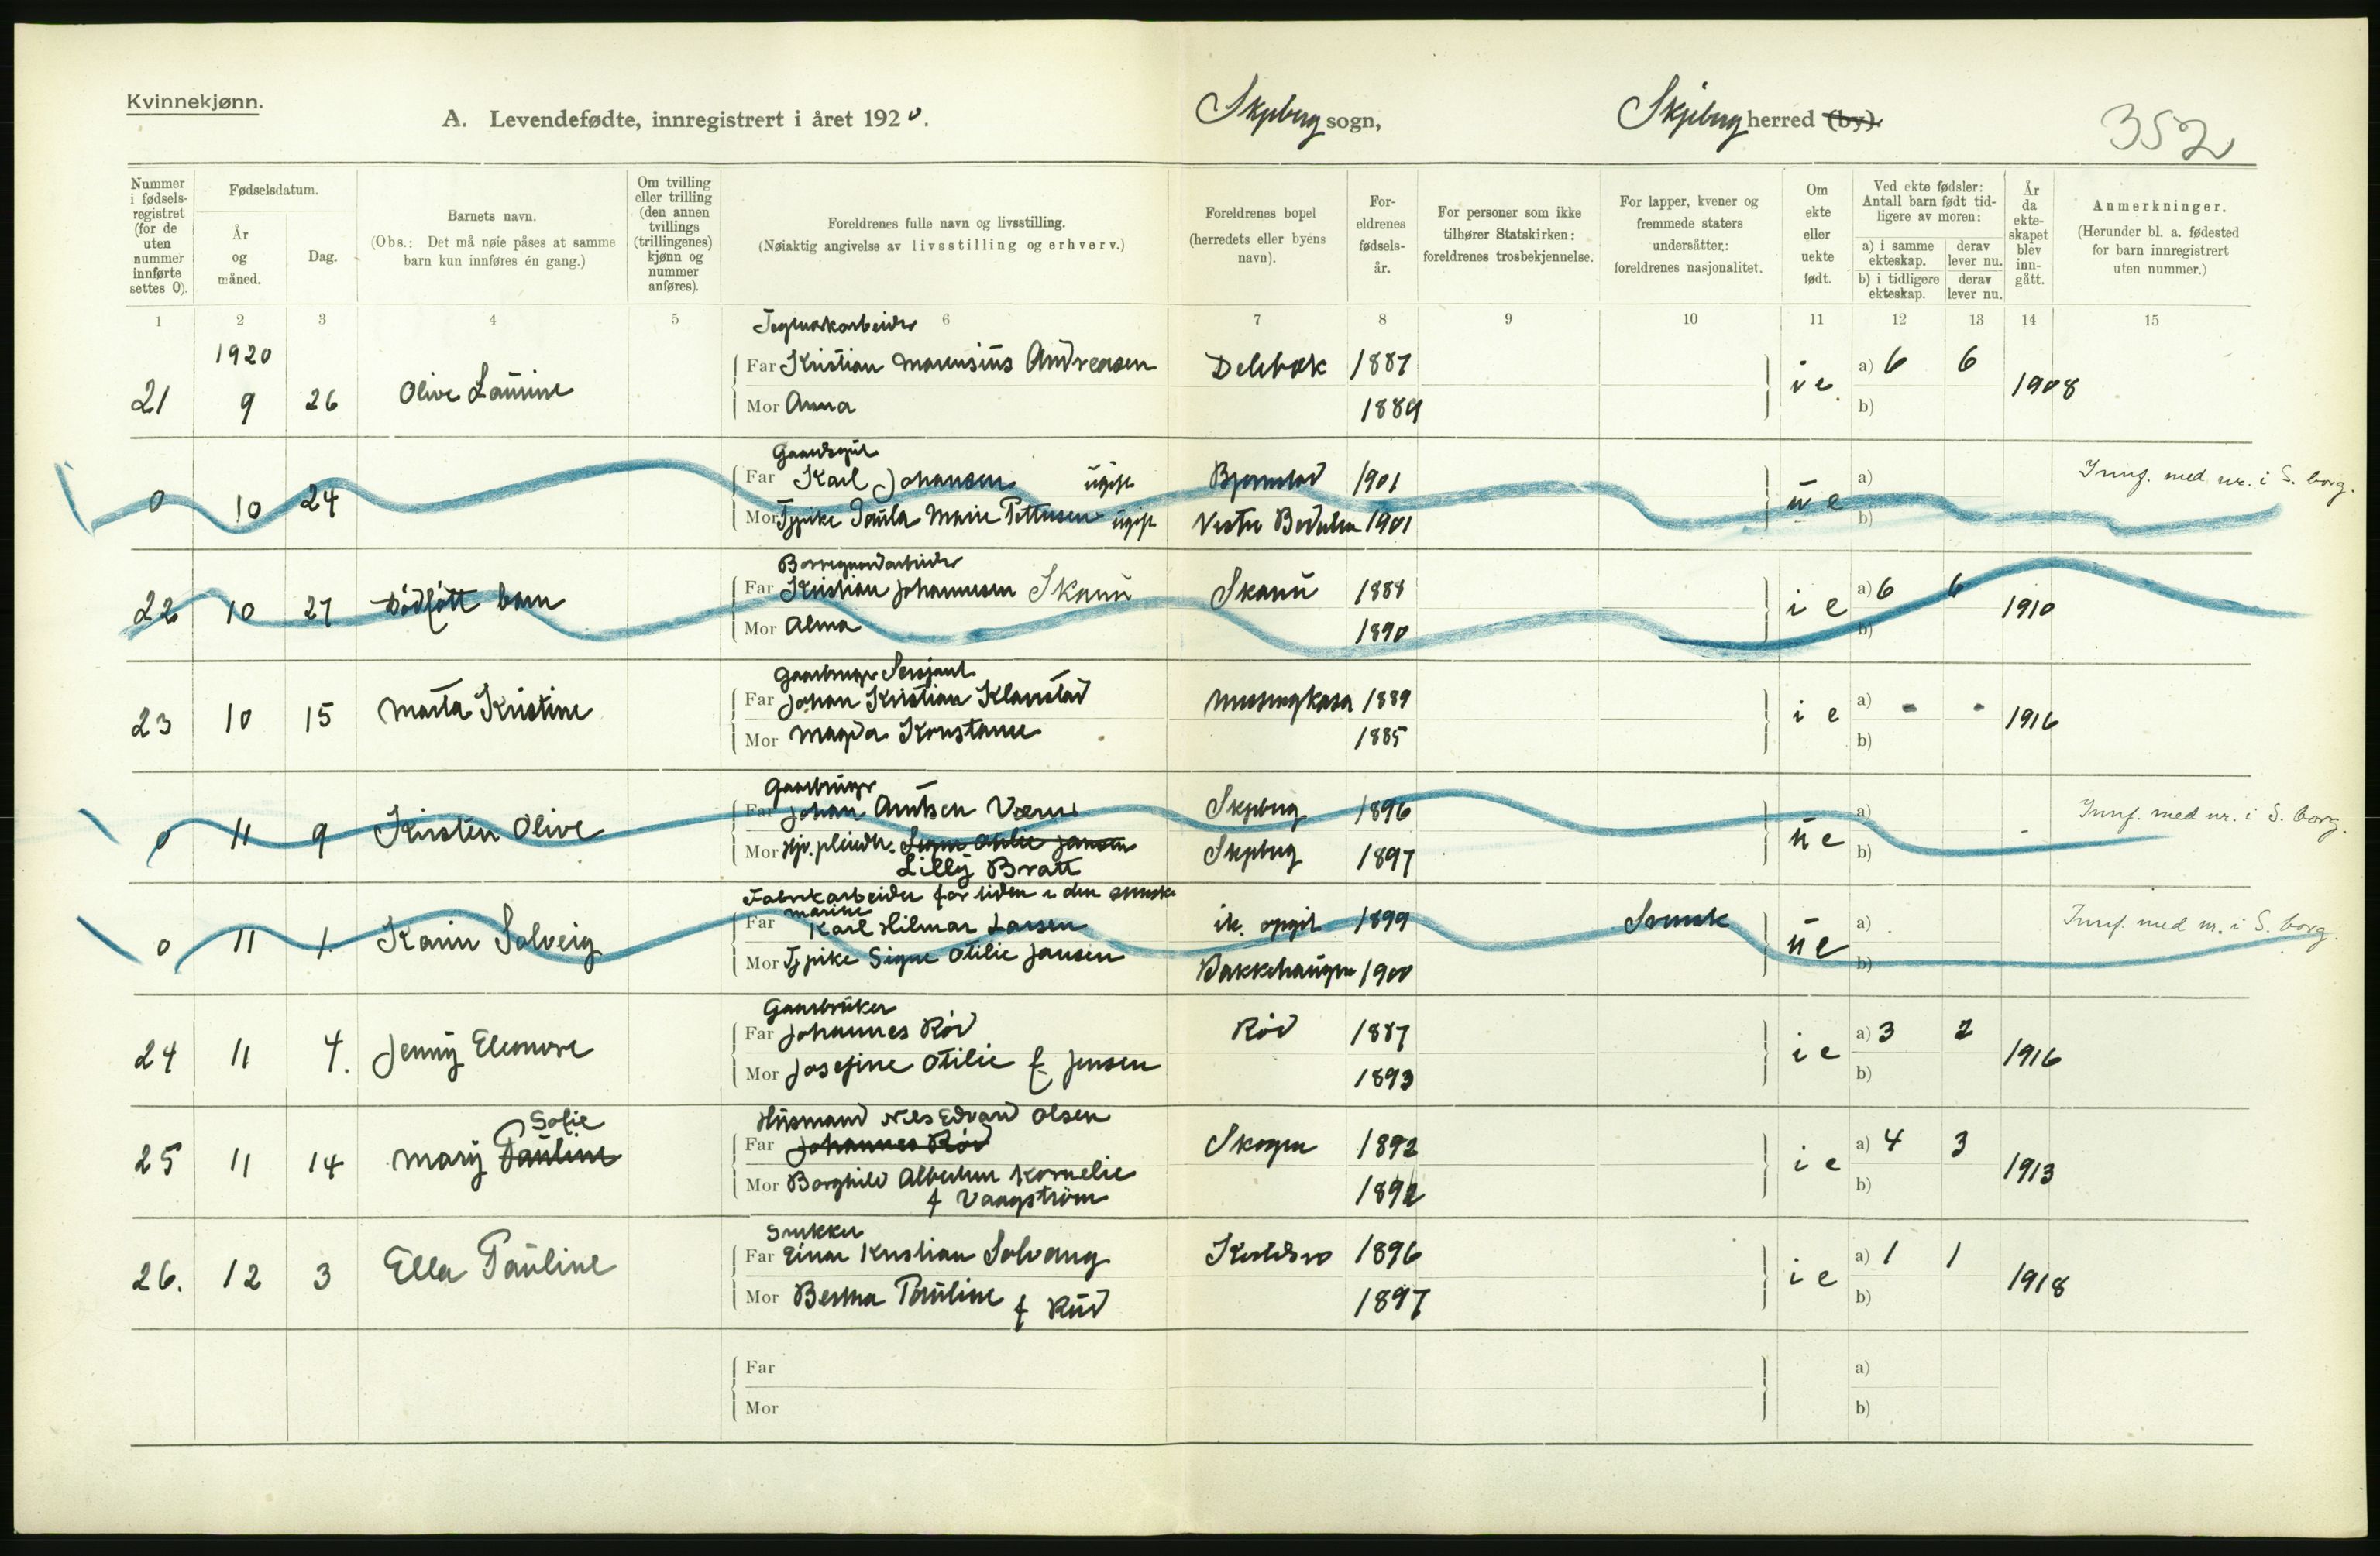 Kvinnekjønn.
A. Levendefødte, innregistrert i året 1920.
Skjeberg sogn,
Skjeberg herred (by).
352
Nummer i fødselsregistret (for de uten nummer innførte settes 0).
Fødselsdatum.
År og måned.
Dag.
Barnets navn.
(Obs.: Det må nøie påses at samme barn kun innføres én gang.)
Om tvilling eller trilling (den annen tvillings (trillingenes) kjønn og nummer anføres).
Foreldrenes fulle navn og livsstilling.
(Nøiaktig angivelse av livsstilling og erhverv.)
Foreldrenes bopel (herredets eller byens navn).
Foreldrenes fødselsår.
For personer som ikke tilhører Statskirken: foreldrenes trosbekjennelse.
For lapper, kvener og fremmede staters undersåtter: foreldrenes nasjonalitet.
Om ekte eller uekte født.
Ved ekte fødsler: Antall barn født tidligere av moren:
a) i samme ekteskap.
derav lever nu.
b) i tidligere ekteskap.
derav lever nu.
År da ekteskapet blev inngått.
Anmerkninger.
(Herunder bl. a. fødested for barn innregistrert uten nummer.)
1 2 3 4 5 6 7 8 9 10 11 12 13 14 15
Teglverkarbeider
1920
21 9 26 Olive Laurine Far Kristian Marensius Andreasen Delebæk 1887 i e a) 6 6 1908
Mor Anna 1889 b)
Gaardsgut
0 10 24 Far Karl Johansen ugift Bjørnstad 1901 u e a) Innf. med nr. i S. borg.
Mor Tjpike Paula Marie Pettersen ugift Vestre 1901 b)
Borregaardarbeider
22 10 27 Dödfött barn Far Kristian Johannesen Skanu Skanu 1888 i e a) 6 6 1910
Mor Alma 1890 b)
Gaarbruger Sersjant
23 10 15 Marta Kristine Far Johan Kristian Klavestad 1889 i e a) - - 1916
Mor Magda Konstanse 1885 b)
Gaarbruger
0 11 9 Kirsten Olive Far Johan Amtsen Værne Skjeberg 1896 u e a) Innf. med nr. i S. borg.
Mor Signe Otilie Jansen Skjeberg 1897 b) -
Lilly Bratt
Fabrikarbeider for tiden i den svenske
marine
0 11 1. Karin Solveig Far Karl Hilmar Larsen ik. opgit 1899 Svensk u e a) Innf. med nr. i S. borg.
Mor Tjpike Signe Otilie Jansen Bakkehaugen 1900 b)
Gaarbruker
24 11 4. Jenny Eleonore Far Johannes Röd Röd 1887 i e a) 3 2 1916
Mor Josefine Otilie f Jensen 1893 b)
Husmand Nils Edvard Olsen
Sofie
25 11 14 Mary Pauline Far Johannes Röd Skogen 1892 i e a) 4 3 1913
Mor Borghild Albertine Kornelie 1892 b)
f Vaagström
Snekker
26. 12 3 Ella Pauline Far Einar Kristian Solvang 1896 i e a) 1 1 1918
Mor Berta Pauline f Rud 1897 b)
Far a)
Mor b)